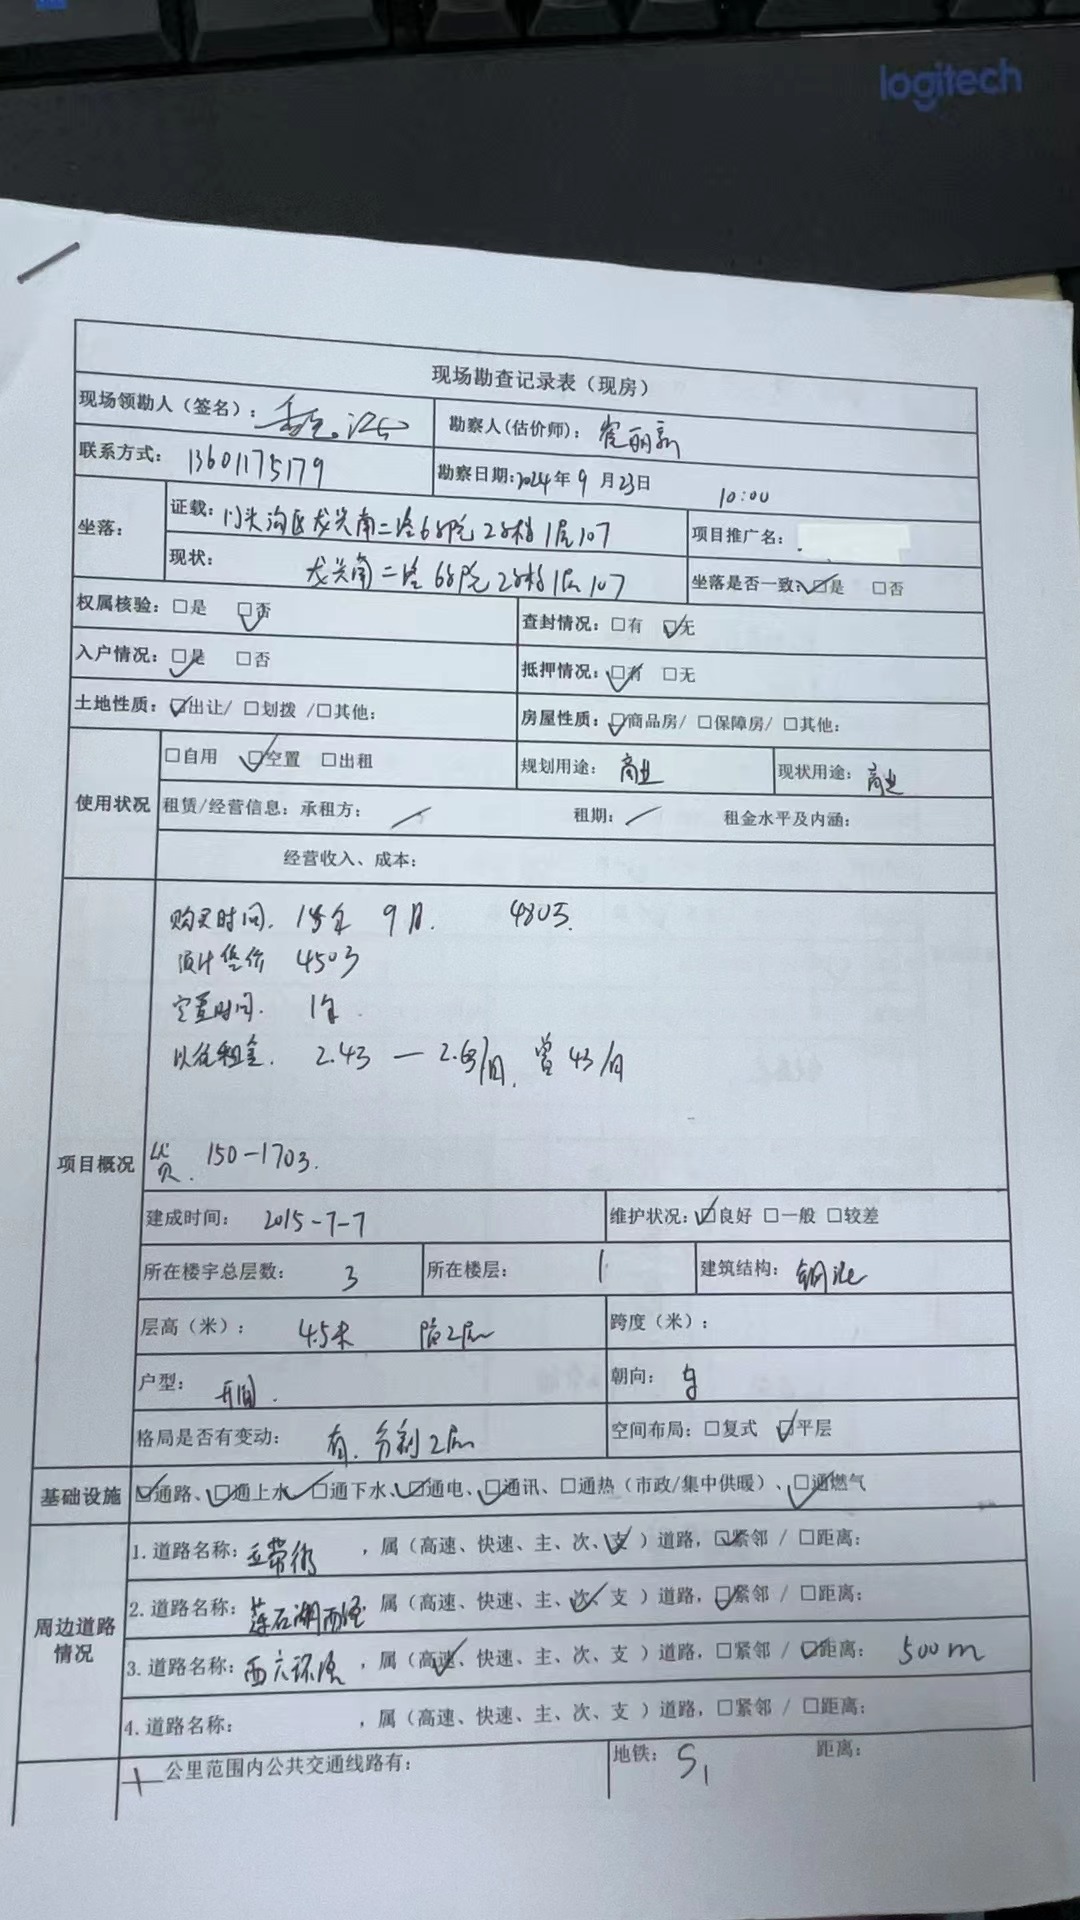 logitech
现场勘查记录表（现房）
现场领勘人（签名）： 勘察人(估价师)： 崔丽新
联系方式： 13601175179 勘察日期:2024年9月23日 10:00
坐落： 证载: 门头沟区龙兴南二路6号院2号楼1层107 项目推广名：
现状： 龙兴南二路6号院2号楼1层107 坐落是否一致:☑是 □否
权属核验：□是 ☑否 查封情况：□有 ☑无
入户情况：☑是 □否 抵押情况：☑有 □无
土地性质：☑出让/ □划拨 /□其他： 房屋性质：☑商品房/ □保障房/ □其他：
使用状况 □自用 ☑空置 □出租 规划用途： 商业 现状用途： 商业
租赁/经营信息：承租方： / 租期： / 租金水平及内涵：
经营收入、成本：
项目概况
购买时间. 18年 9月. 480万.
预计售价 450万
空置时间. 1年.
以往租金. 2.4万 — 2.6万/月. 曾4万/月
150-170万.
建成时间： 2015-7-7 维护状况：☑良好 □一般 □较差
所在楼宇总层数： 3 所在楼层： 1 建筑结构： 钢混
层高（米）： 4.5米 隔2层 跨度（米）：
户型： 开间. 朝向：
格局是否有变动： 有. 分割2层 空间布局：□复式 ☑平层
基础设施 ☑通路、☑通上水、☑通下水、☑通电、☑通讯、□通热（市政/集中供暖）、☑通燃气
周边道路情况
1. 道路名称: 玉带街 ，属（高速、快速、主、次、支✓）道路，☑紧邻 / □距离：
2. 道路名称: 莲石湖西路 属（高速、快速、主、次✓、支 ）道路，☑紧邻 / □距离：
3. 道路名称: 西六环路 ，属（高速✓、快速、主、次、支 ）道路，□紧邻 / ☑距离： 500m
4. 道路名称： ，属（高速、快速、主、次、支 ）道路，□紧邻 / □距离：
公里范围内公共交通线路有： 地铁： S1 距离：